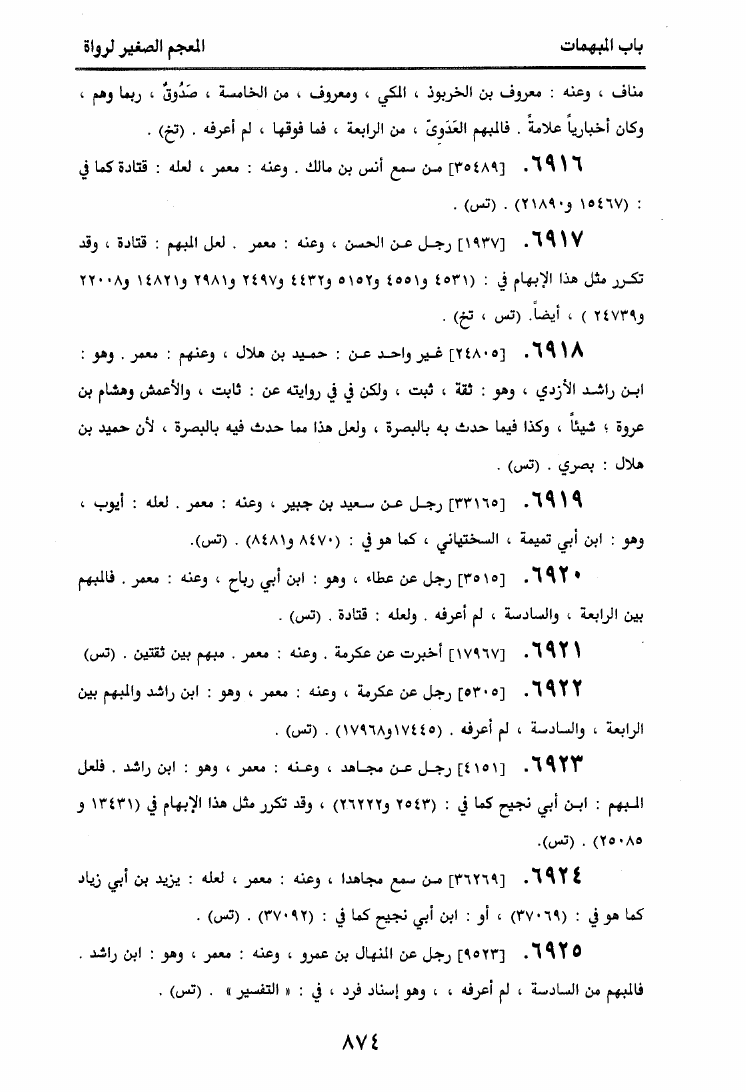 باب المبهمات
المعجم الصغير لرواة
مناف ، وعنه : معروف بن الخربوذ ، المكي ، ومعروف ، من الخامسة ، صَدُوقٌ ، ربما وهم ،
وكان أخبارياً علامةً . فالمبهم العَدَوِىّ ، من الرابعة ، فما فوقها ، لم أعرفه . (تخ) .
٦٩١٦. [٣٥٤٨٩] من سمع أنس بن مالك . وعنه : معمر ، لعله : قتادة كما في
: (١٥٤٦٧ و٢١٨٩٠) . (تس) .
٦٩١٧. [١٩٣٧] رجل عن الحسن ، وعنه : معمر . لعل المبهم : قتادة ، وقد
تكرر مثل هذا الإبهام في : (٤٥٣١ و٤٥٥١ و٥١٥٢ و٤٤٣٢ و٢٤٩٧ و٢٩٨١ و١٤٨٢١ و٢٢٠٠٨
و٢٤٧٣٩ ) ، أيضاً. (تس ، تخ) .
٦٩١٨. [٢٤٨٠٥] غير واحد عن : حميد بن هلال ، وعنهم : معمر . وهو :
ابن راشد الأزدي ، وهو : ثقة ، ثبت ، ولكن في في روايته عن : ثابت ، والأعمش وهشام بن
عروة ؛ شيئاً ، وكذا فيما حدث به بالبصرة ، ولعل هذا مما حدث فيه بالبصرة ، لأن حميد بن
هلال : بصري . (تس) .
٦٩١٩. [٣٣١٦٥] رجل عن سعيد بن جبير ، وعنه : معمر . لعله : أيوب ،
وهو : ابن أبي تميمة ، السختياني ، كما هو في : (٨٤٧٠ و٨٤٨١) . (تس).
٦٩٢٠. [٣٥١٥] رجل عن عطاء ، وهو : ابن أبي رباح ، وعنه : معمر . فالمبهم
بين الرابعة ، والسادسة ، لم أعرفه . ولعله : قتادة . (تس) .
٦٩٢١. [١٧٩٦٧] أخبرت عن عكرمة . وعنه : معمر . مبهم بين ثقتين . (تس)
٦٩٢٢. [٥٣٠٥] رجل عن عكرمة ، وعنه : معمر ، وهو : ابن راشد والمبهم بين
الرابعة ، والسادسة ، لم أعرفه . (١٧٤٤٥و١٧٩٦٨) . (تس) .
٦٩٢٣. [٤١٥١] رجل عن مجاهد ، وعنه : معمر ، وهو : ابن راشد . فلعل
المبهم : ابن أبي نجيح كما في : (٢٥٤٣ و٢٦٢٢٢) ، وقد تكرر مثل هذا الإبهام في (١٣٤٣١ و
٢٥٠٨٥) . (تس).
٦٩٢٤. [٣٦٢٦٩] من سمع مجاهدا ، وعنه : معمر ، لعله : يزيد بن أبي زياد
كما هو في : (٣٧٠٦٩) ، أو : ابن أبي نجيح كما في : (٣٧٠٩٢) . (تس) .
٦٩٢٥. [٩٥٢٣] رجل عن المنهال بن عمرو ، وعنه : معمر ، وهو : ابن راشد .
فالمبهم من السادسة ، لم أعرفه ، ، وهو إسناد فرد ، في : « التفسير » . (تس) .
٨٧٤